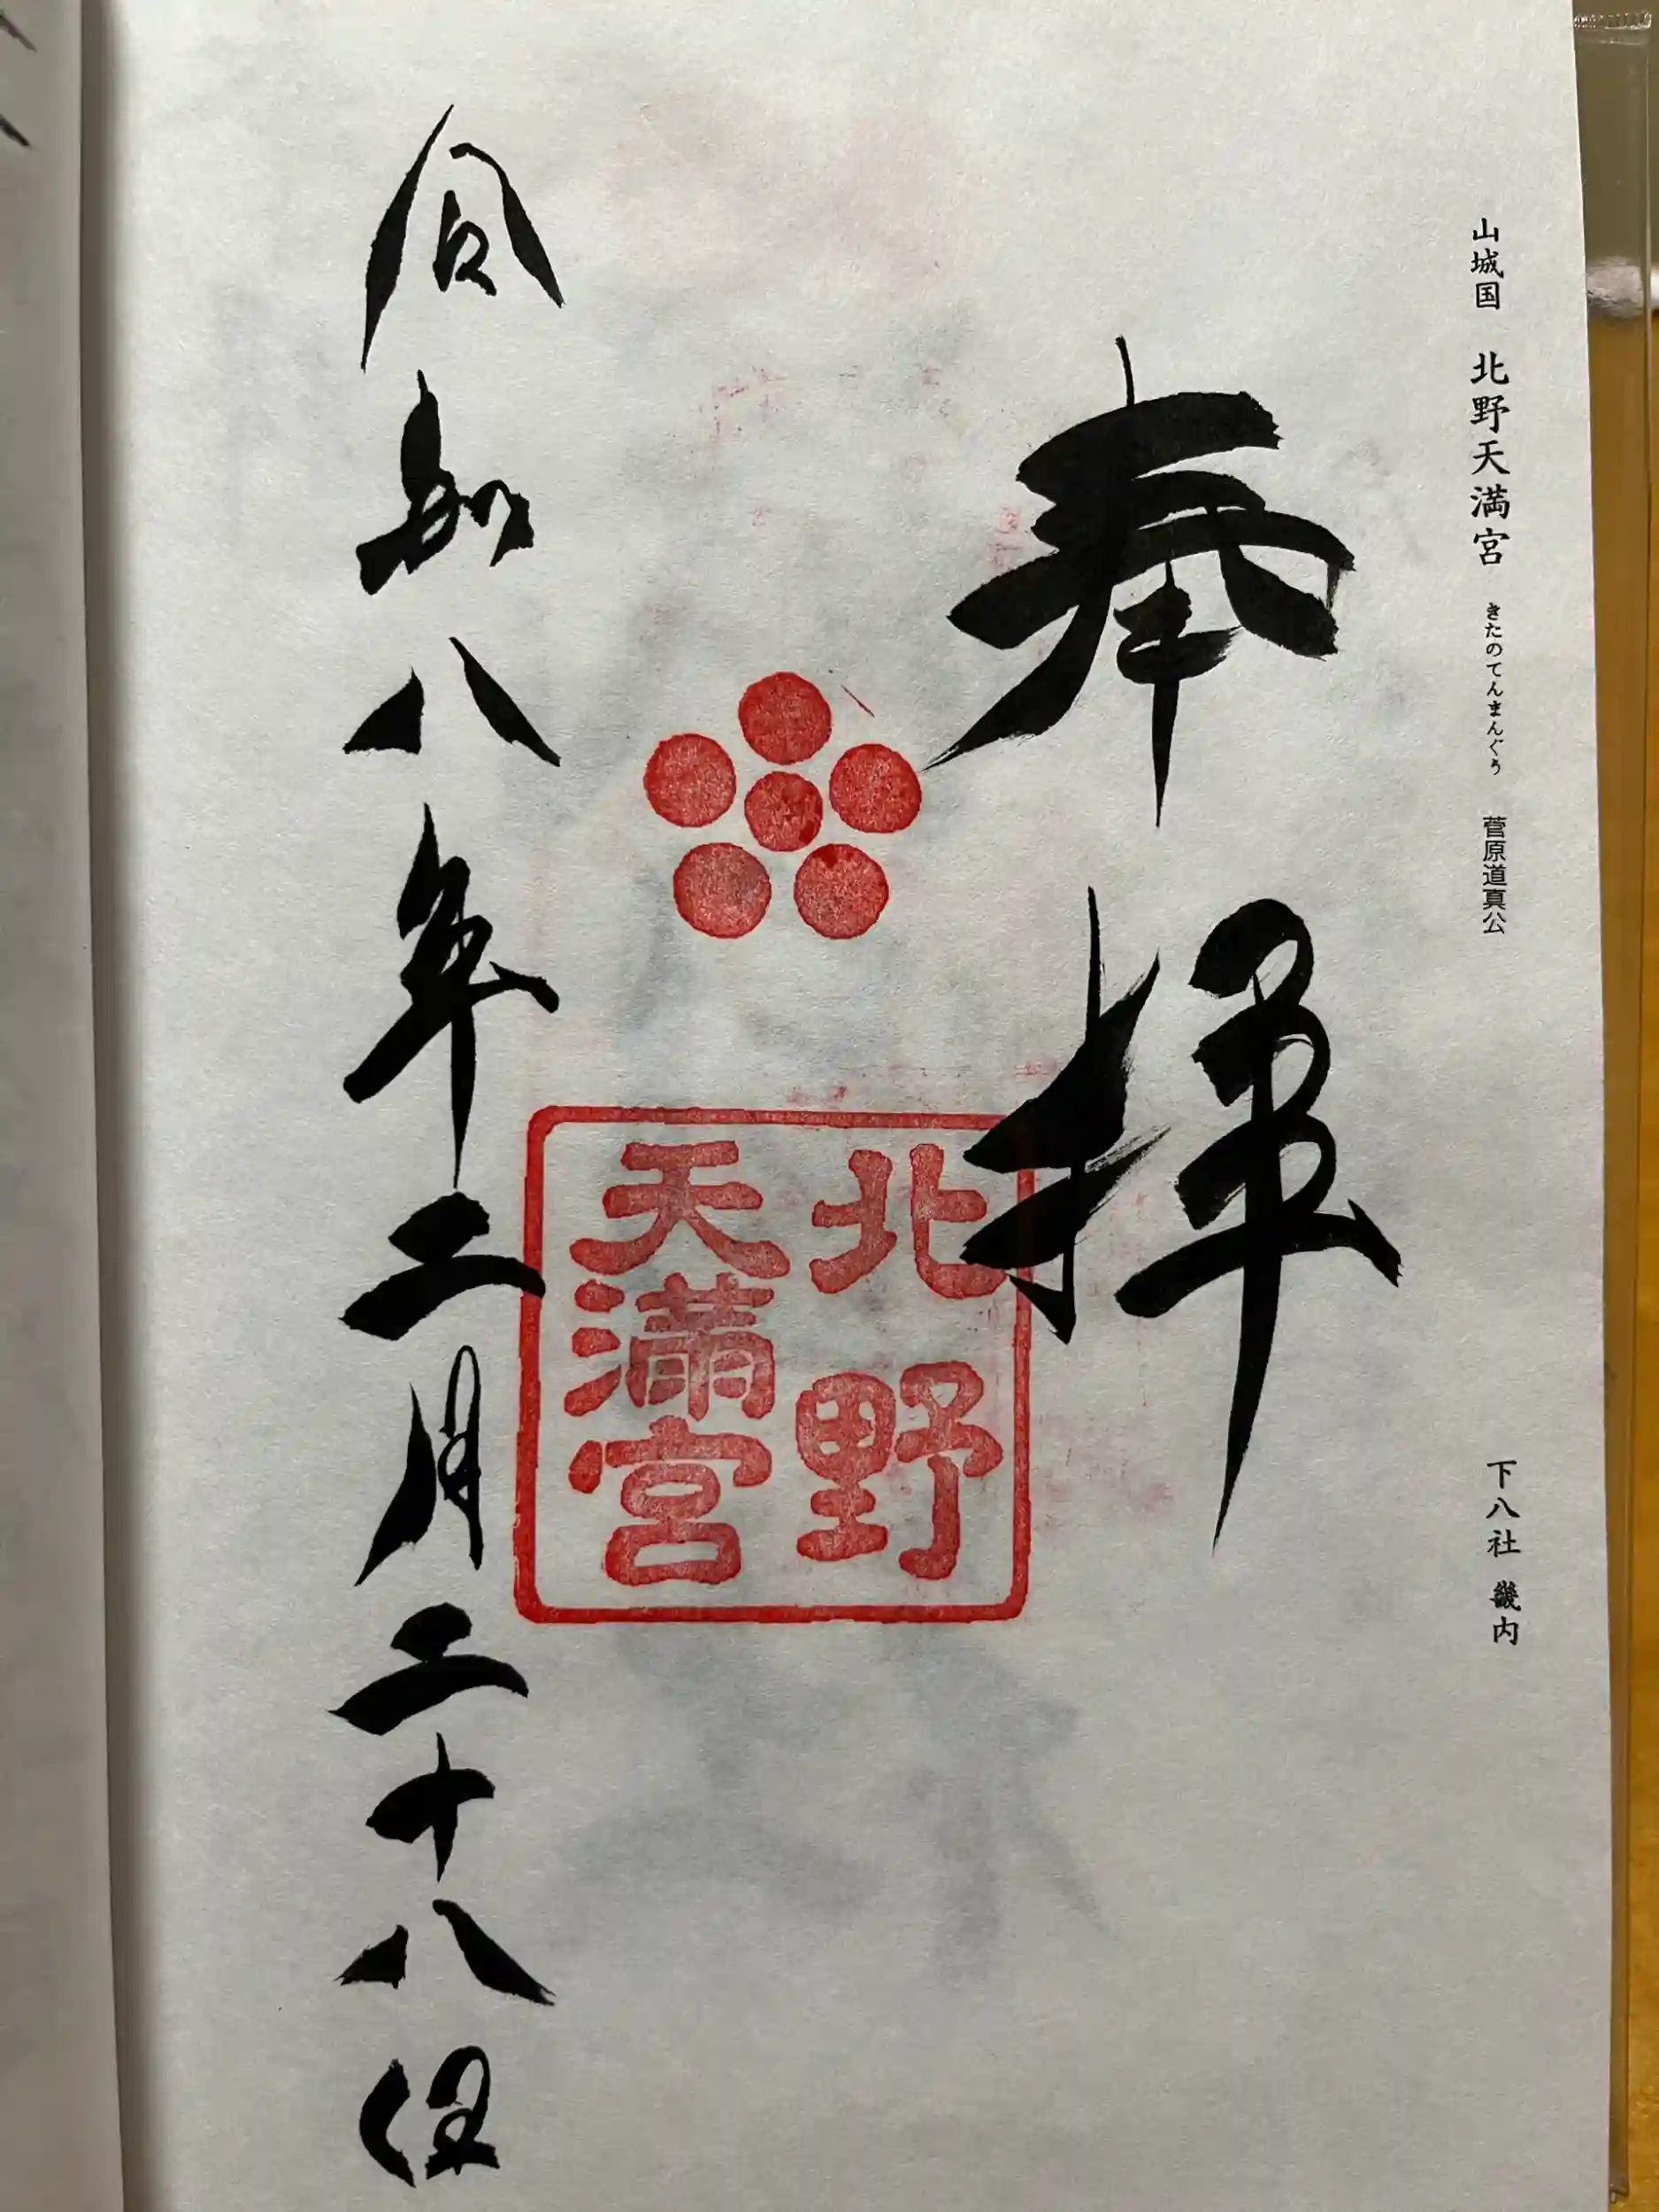 山城国 北野天満宮 きたのてんまんぐう 菅原道真公 下八社 畿内
奉拝
北野
天満宮
令和八年二月二十八日